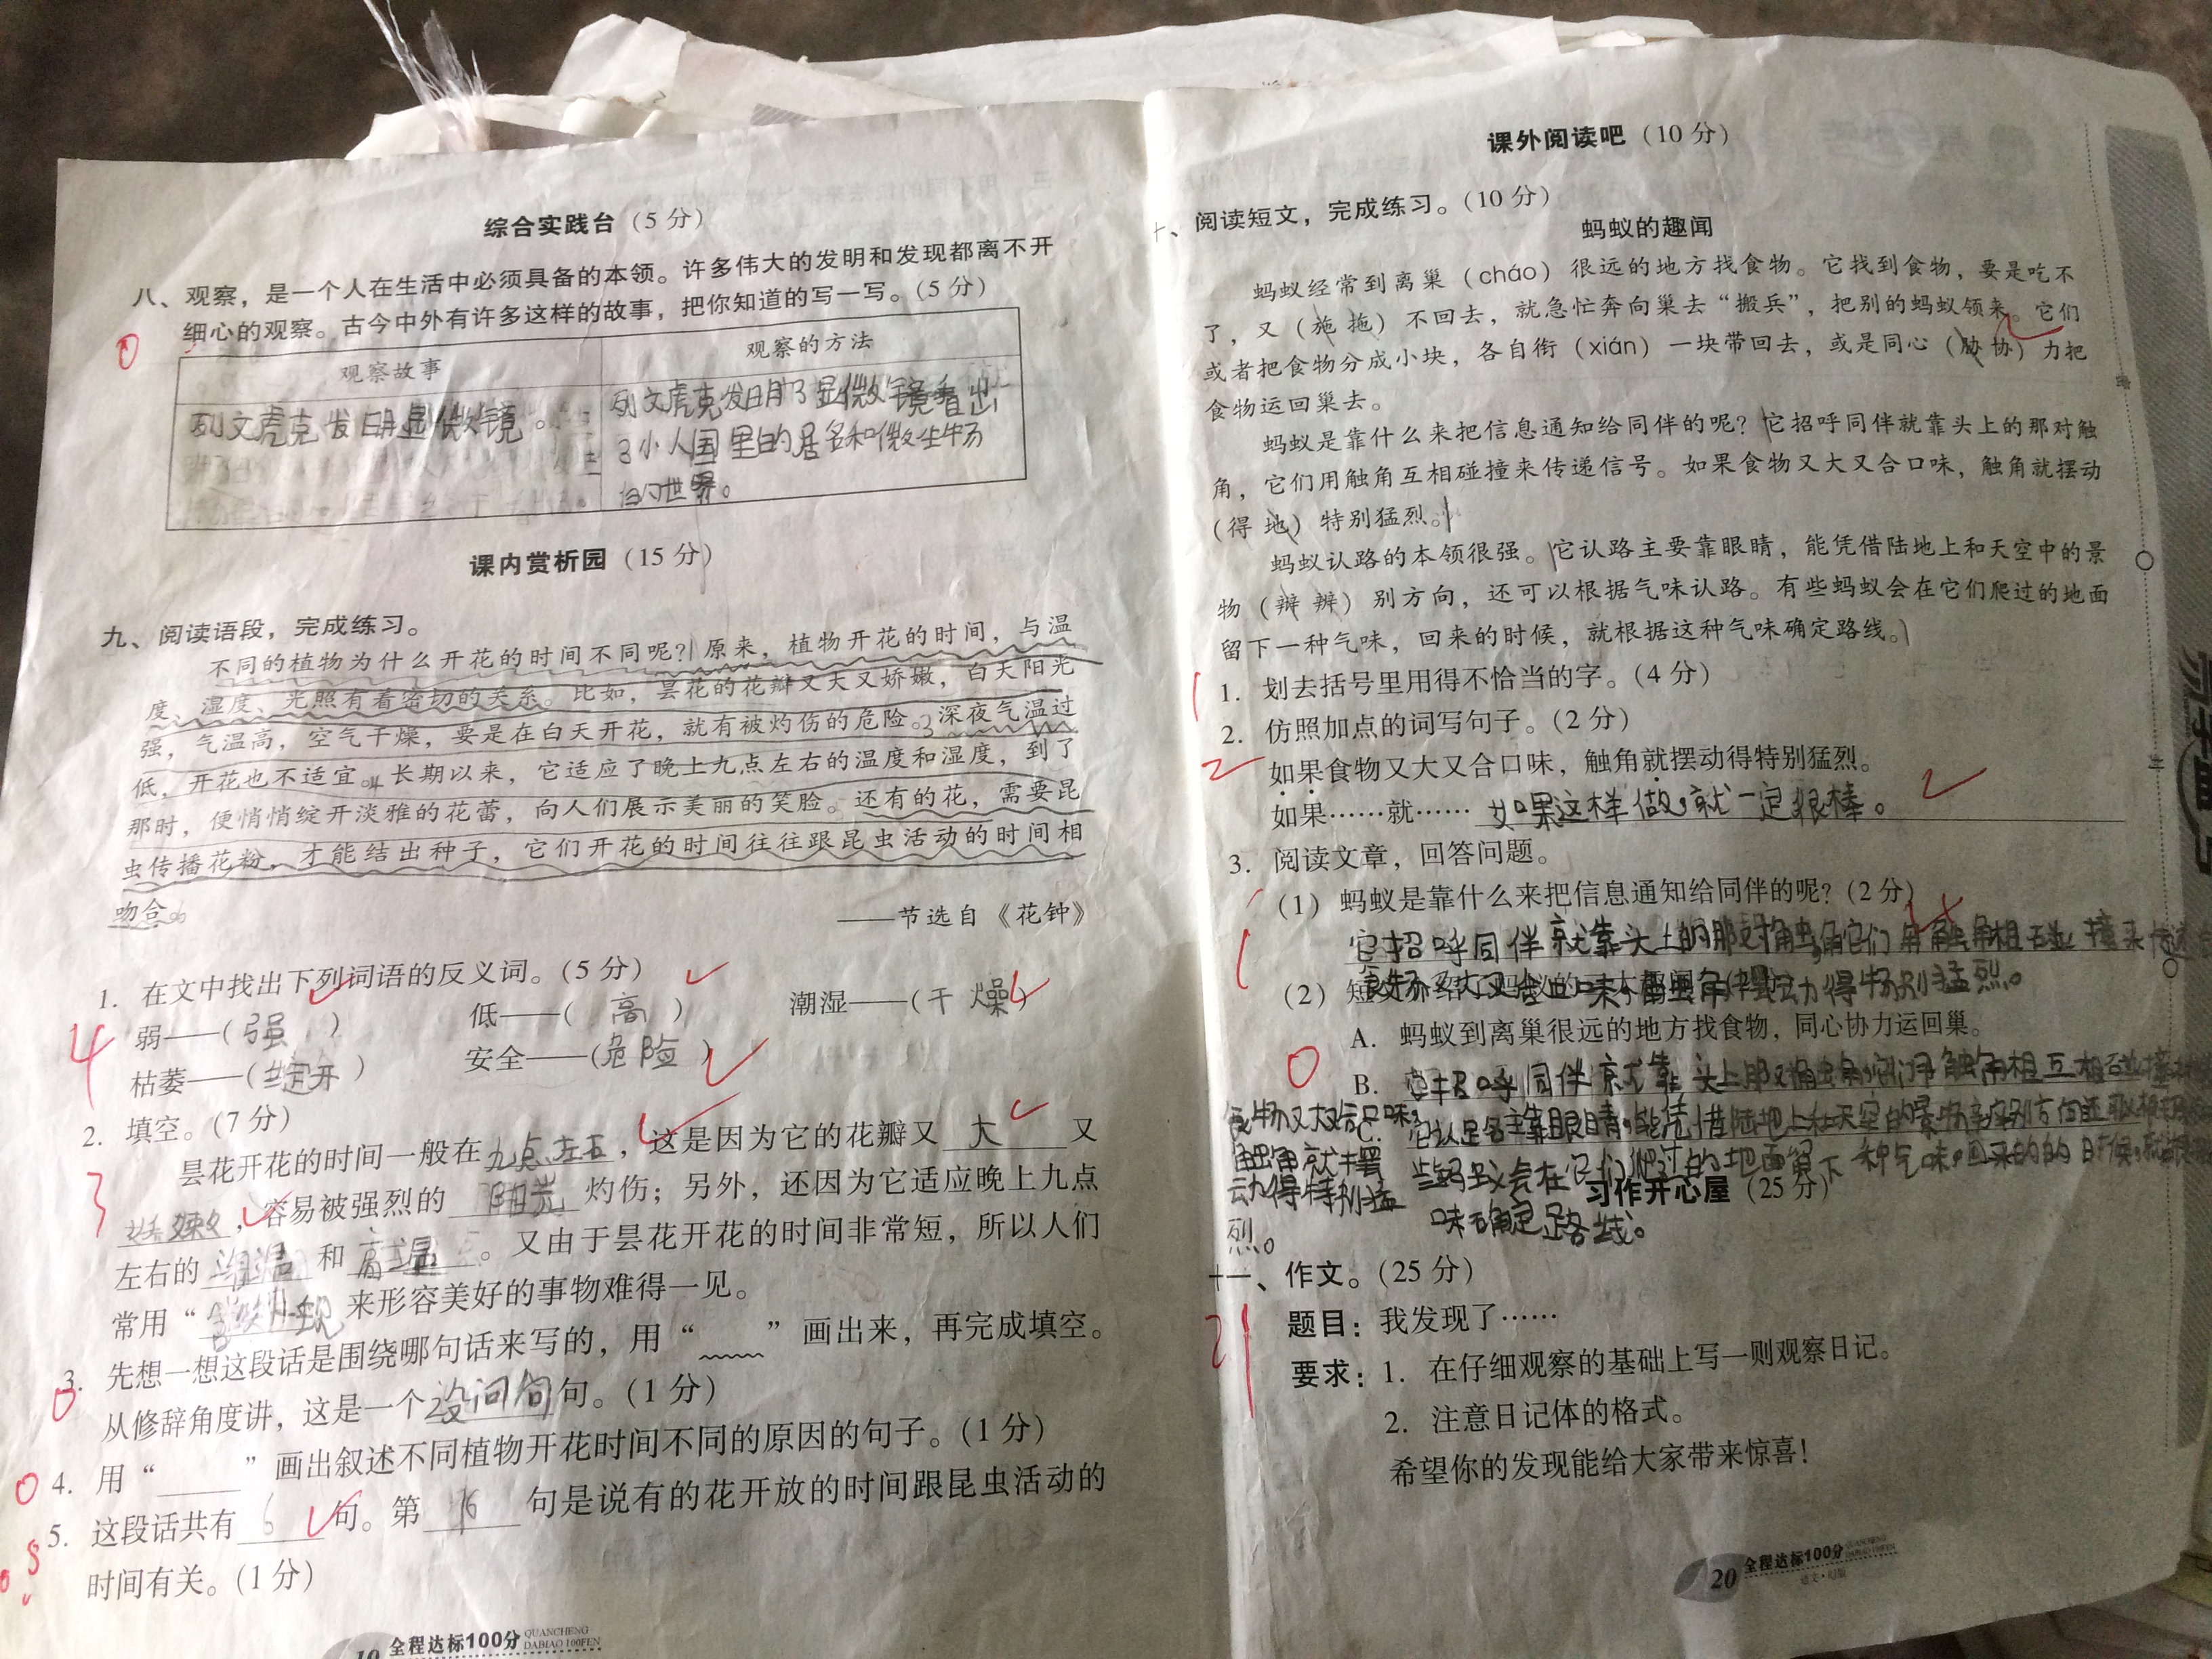 综合实践台（5 分）
八、观察，是一个人在生活中必须具备的本领。许多伟大的发明和发现都离不开
细心的观察。古今中外有许多这样的故事，把你知道的写一写。（5 分）
0
观察故事
观察的方法
列文虎克发明显微镜。
列文虎克发明了显微镜看出
了小人国里的居名和微生物
的世界。
课内赏析园（15 分）
九、阅读语段，完成练习。
不同的植物为什么开花的时间不同呢？原来，植物开花的时间，与温
度、湿度、光照有着密切的关系。比如，昙花的花瓣又大又娇嫩，白天阳光
强，气温高，空气干燥，要是在白天开花，就有被灼伤的危险。3 深夜气温过
低，开花也不适宜。4 长期以来，它适应了晚上九点左右的温度和湿度，到了
那时，便悄悄绽开淡雅的花蕾，向人们展示美丽的笑脸。还有的花，需要昆
虫传播花粉，才能结出种子，它们开花的时间往往跟昆虫活动的时间相
吻合。6
——节选自《花钟》
1. 在文中找出下列词语的反义词。（5 分）
弱——（强） 低——（高） 潮湿——（干燥）
4
枯萎——（绽开） 安全——（危险）
2. 填空。（7 分）
昙花开花的时间一般在九点左右，这是因为它的花瓣又大又
3
娇嫩，容易被强烈的阳光灼伤；另外，还因为它适应晚上九点
左右的 和 。又由于昙花开花的时间非常短，所以人们
常用“ 现 来形容美好的事物难得一见。
3. 先想一想这段话是围绕哪句话来写的，用“ ”画出来，再完成填空。
0
从修辞角度讲，这是一个设问句句。（1 分）
0 4. 用“ ”画出叙述不同植物开花时间不同的原因的句子。（1 分）
5. 这段话共有 6 句。第 句是说有的花开放的时间跟昆虫活动的
时间有关。（1 分）
19 全程达标100分 QUANCHENG
DABIAO 100FEN
课外阅读吧（10 分）
十、阅读短文，完成练习。（10 分）
蚂蚁的趣闻
蚂蚁经常到离巢（cháo）很远的地方找食物。它找到食物，要是吃不
了，又（施 拖）不回去，就急忙奔向巢去“搬兵”，把别的蚂蚁领来。它们
或者把食物分成小块，各自衔（xián）一块带回去，或是同心（胁 协）力把
食物运回巢去。
蚂蚁是靠什么来把信息通知给同伴的呢？它招呼同伴就靠头上的那对触
角，它们用触角互相碰撞来传递信号。如果食物又大又合口味，触角就摆动
（得 地）特别猛烈。
蚂蚁认路的本领很强。它认路主要靠眼睛，能凭借陆地上和天空中的景
物（辩 辨）别方向，还可以根据气味认路。有些蚂蚁会在它们爬过的地面
留下一种气味，回来的时候，就根据这种气味确定路线。
1 1. 划去括号里用得不恰当的字。（4 分）
2. 仿照加点的词写句子。（2 分）
2 如果食物又大又合口味，触角就摆动得特别猛烈。
如果……就…… 如果这样做，就一定很棒。
3. 阅读文章，回答问题。
（1）蚂蚁是靠什么来把信息通知给同伴的呢？（2 分）
1
它招呼同伴就靠头上的那对触角它们用触角相碰撞来传递
食物又大又合口味，触角就摆动得特别猛烈。
（2）短文介绍了蚂蚁的三大趣闻
A. 蚂蚁到离巢很远的地方找食物，同心协力运回巢。
0
B. 它招呼同伴就靠头上那对触角，它们用触角相互相碰撞
食物又大又合口味，
触角就摆
动得特别猛
烈。
C. 它认路主靠眼睛，能凭借陆地上和天空的景物辛辨别方向还可以根据
些蚂蚁会在它们爬过的地面留下一种气味，回来的的时候，就根据
味确定路线。
习作开心屋（25 分）
十一、作文。（25 分）
21
题目：我发现了……
要求：1. 在仔细观察的基础上写一则观察日记。
2. 注意日记体的格式。
希望你的发现能给大家带来惊喜！
20 全程达标100分 QUANCHENG
DABIAO 100FEN